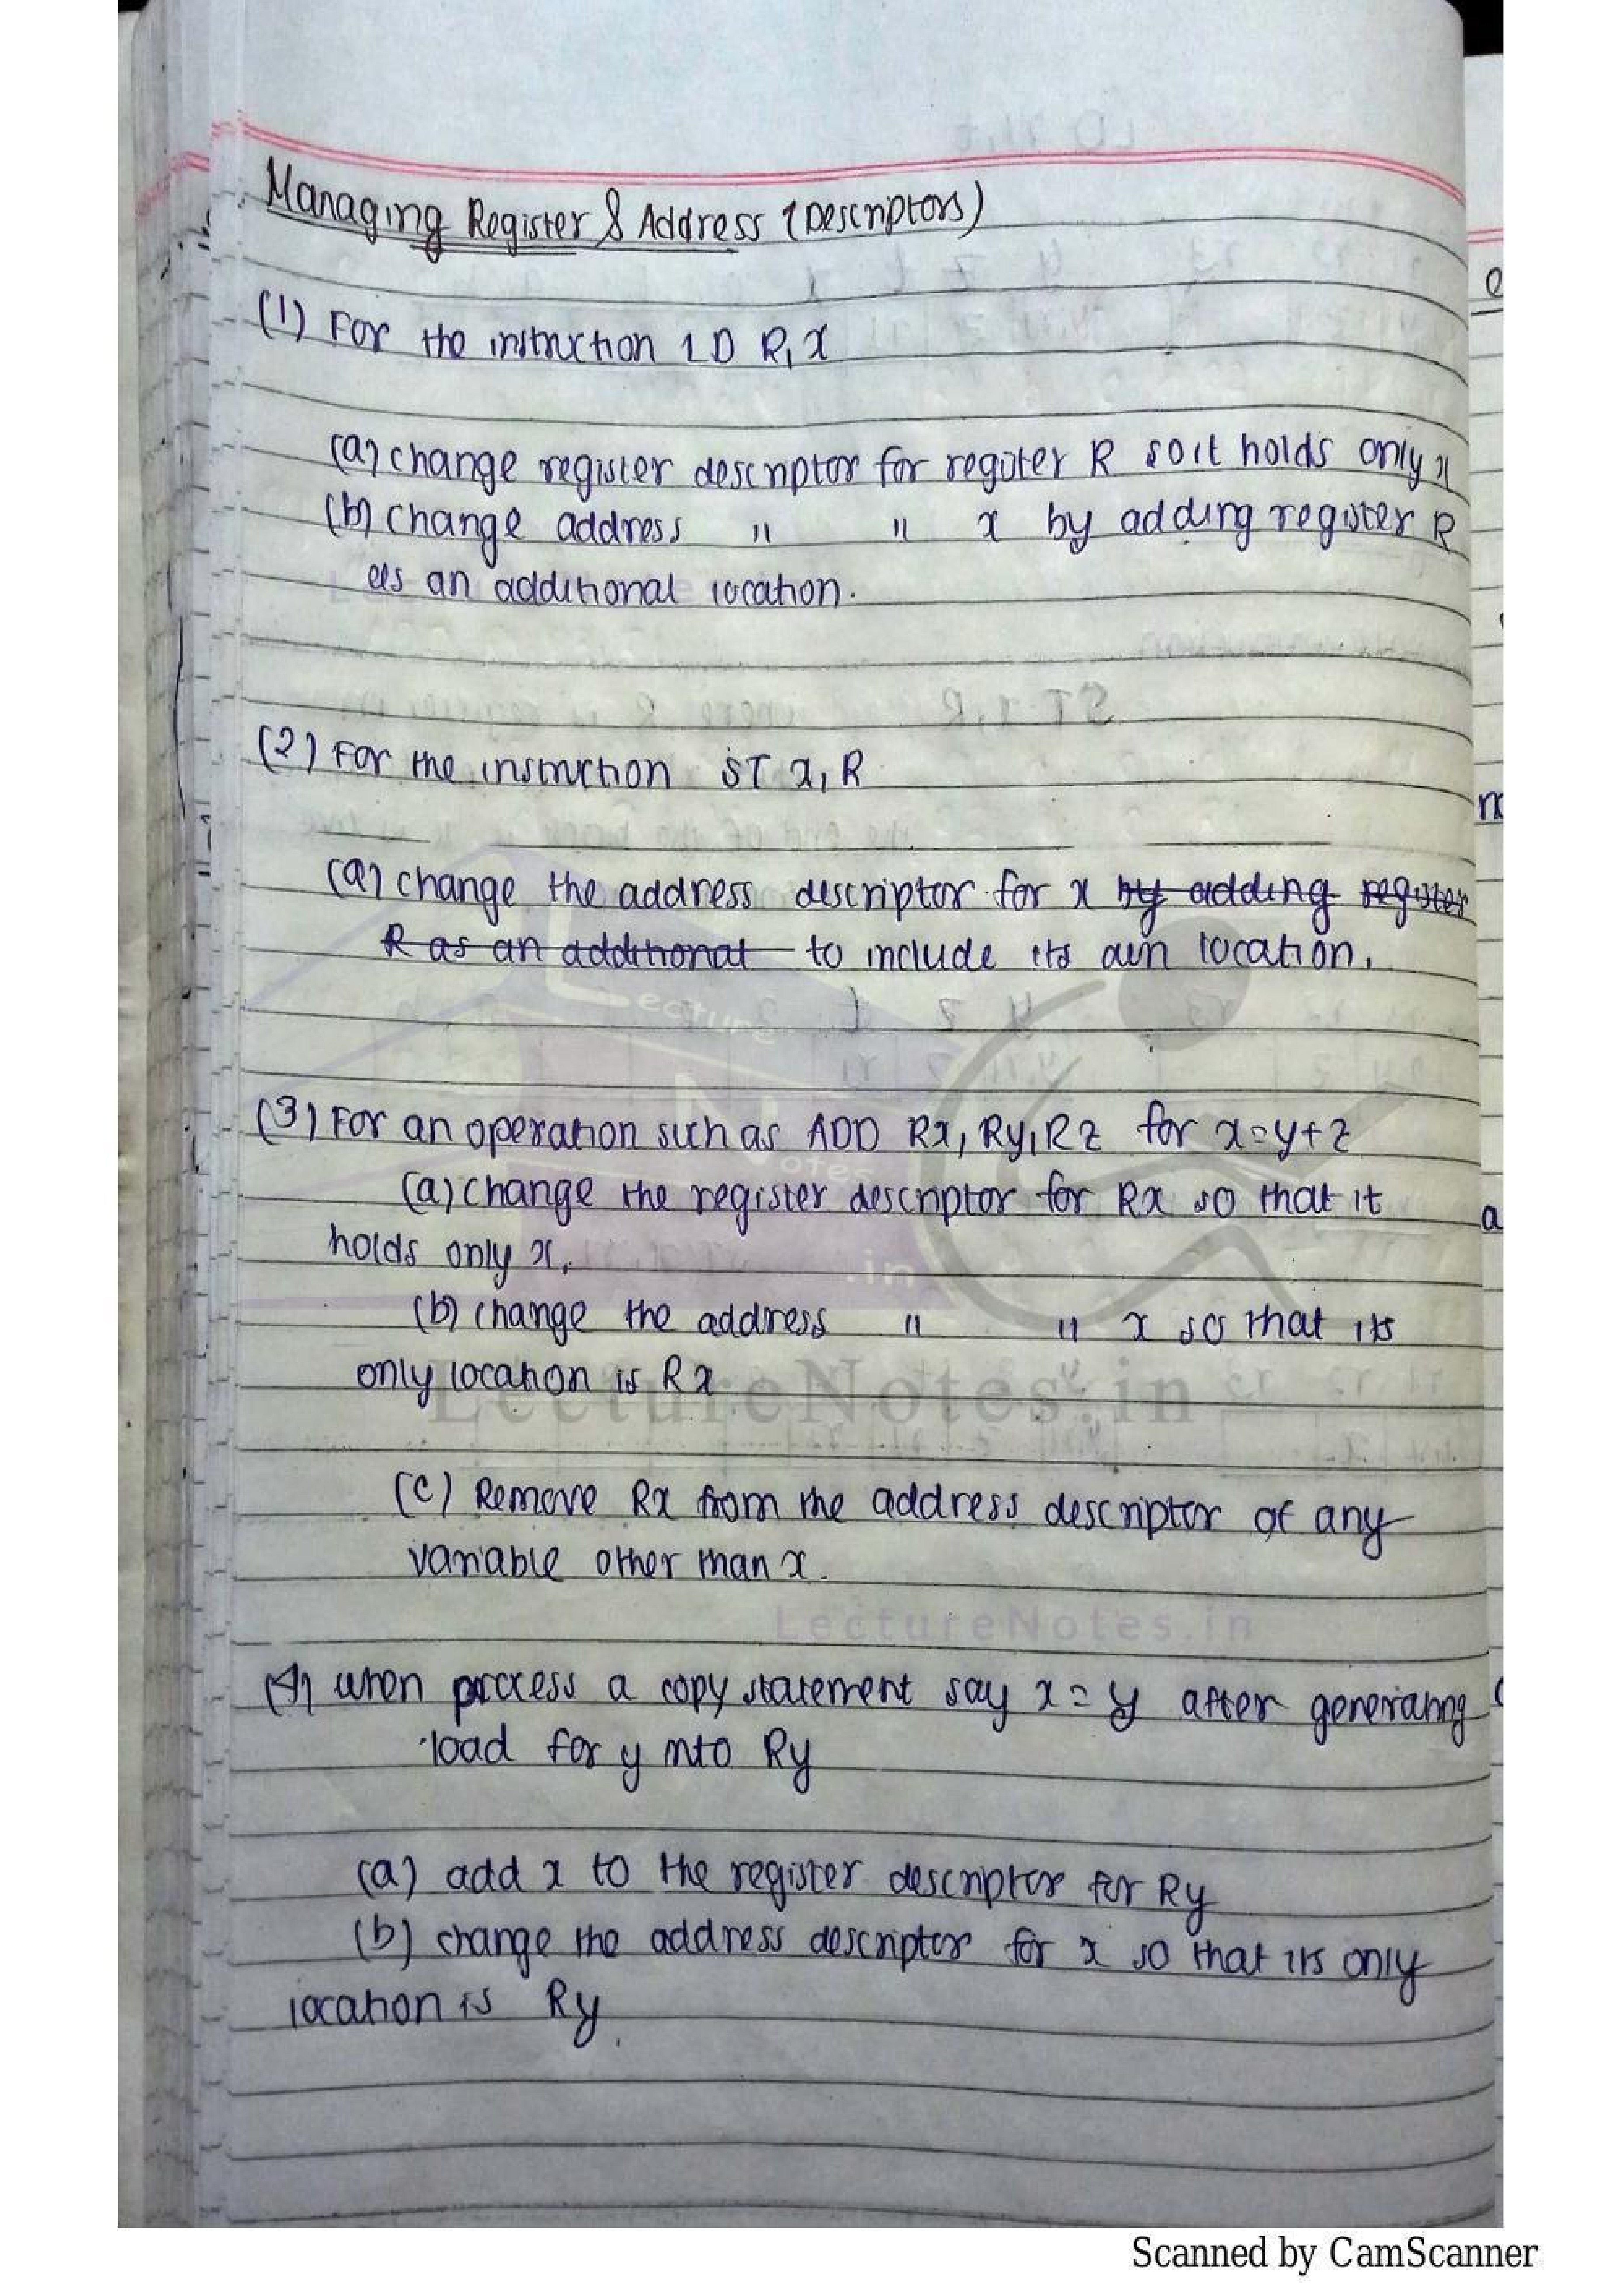 Managing Register & Address (Descriptors)
(1) For the instruction LD R, x
(a) change register descriptor for register R so it holds only x
(b) change address " " x by adding register R
as an additional location.
(2) For the instruction ST x, R
(a) change the address descriptor for x by adding register
R as an additional to include its own location.
Lecture
Notes
.in
(3) For an operation such as ADD Rx, Ry, Rz for x=y+z
(a) change the register descriptor for Rx so that it
holds only x.
(b) change the address " " x so that its
only location is Rx
LectureNotes.in
(c) Remove Rx from the address descriptor of any
variable other than x.
LectureNotes.in
(4) when process a copy statement say x = y after generating
load for y into Ry
(a) add x to the register descriptor for Ry
(b) change the address descriptor for x so that its only
location is Ry.
Scanned by CamScanner